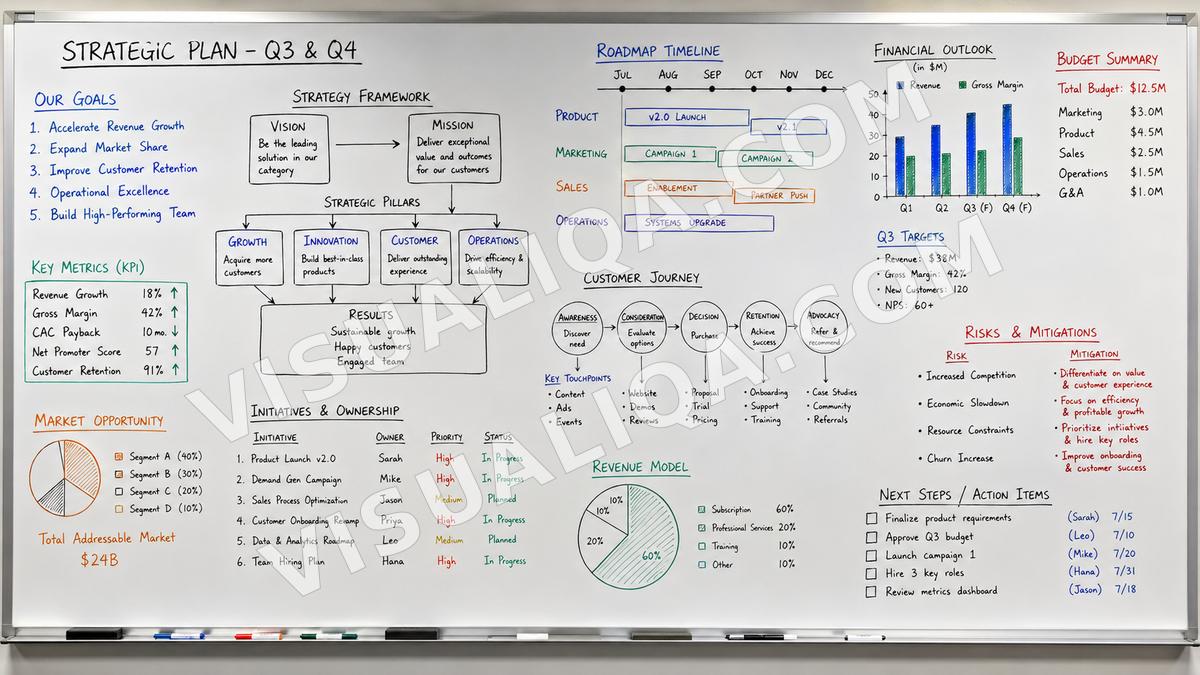 STRATEGIC PLAN - Q3 & Q4
OUR GOALS
1. Accelerate Revenue Growth
2. Expand Market Share
3. Improve Customer Retention
4. Operational Excellence
5. Build High-Performing Team
KEY METRICS (KPI)
Revenue Growth 18% ↑
Gross Margin 42% ↑
CAC Payback 10 mo. ↓
Net Promoter Score 57 ↑
Customer Retention 91% ↑
MARKET OPPORTUNITY
Segment A (40%)
Segment B (30%)
Segment C (20%)
Segment D (10%)
Total Addressable Market
$24B
STRATEGY FRAMEWORK
VISION
Be the leading
solution in our
category
MISSION
Deliver exceptional
value and outcomes
for our customers
STRATEGIC PILLARS
GROWTH
Acquire more
customers
INNOVATION
Build best-in-class
products
CUSTOMER
Deliver outstanding
experience
OPERATIONS
Drive efficiency &
scalability
RESULTS
Sustainable growth
Happy customers
Engaged team
INITIATIVES & OWNERSHIP
INITIATIVE OWNER PRIORITY STATUS
1. Product Launch v2.0 Sarah High In Progress
2. Demand Gen Campaign Mike High In Progress
3. Sales Process Optimization Jason Medium Planned
4. Customer Onboarding Revamp Priya High In Progress
5. Data & Analytics Roadmap Leo Medium Planned
6. Team Hiring Plan Hana High In Progress
ROADMAP TIMELINE
JUL AUG SEP OCT NOV DEC
PRODUCT v2.0 LAUNCH v2.1
MARKETING CAMPAIGN 1 CAMPAIGN 2
SALES ENABLEMENT PARTNER PUSH
OPERATIONS SYSTEMS UPGRADE
CUSTOMER JOURNEY
AWARENESS
Discover
need
CONSIDERATION
Evaluate
options
DECISION
Purchase
RETENTION
Achieve
success
ADVOCACY
Refer &
recommend
KEY TOUCHPOINTS
• Content
• Ads
• Events
• Website
• Demos
• Reviews
• Proposal
• Trial
• Pricing
• Onboarding
• Support
• Training
• Case Studies
• Community
• Referrals
REVENUE MODEL
10%
10%
20%
60%
Subscription 60%
Professional Services 20%
Training 10%
Other 10%
FINANCIAL OUTLOOK
(in $M)
Revenue Gross Margin
50
40
30
20
10
0
Q1 Q2 Q3 (F) Q4 (F)
BUDGET SUMMARY
Total Budget: $12.5M
Marketing $3.0M
Product $4.5M
Sales $2.5M
Operations $1.5M
G&A $1.0M
Q3 TARGETS
• Revenue: $38M
• Gross Margin: 42%
• New Customers: 120
• NPS: 60+
RISKS & MITIGATIONS
RISK
• Increased Competition
• Economic Slowdown
• Resource Constraints
• Churn Increase
MITIGATION
• Differentiate on value
& customer experience
• Focus on efficiency
& profitable growth
• Prioritize intiiatives
& hire key roles
• Improve onboarding
& customer success
NEXT STEPS / ACTION ITEMS
Finalize product requirements (Sarah) 7/15
Approve Q3 budget (Leo) 7/10
Launch campaign 1 (Mike) 7/20
Hire 3 key roles (Hana) 7/31
Review metrics dashboard (Jason) 7/18
VISUALIQA.COM
VISUALIQA.COM